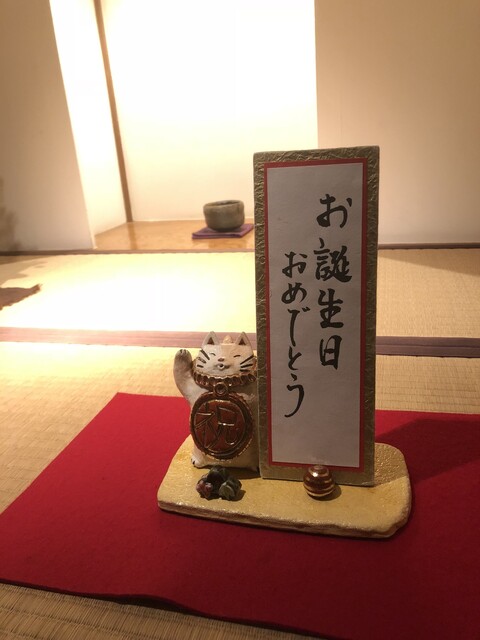 お誕生日
おめでとう
祝